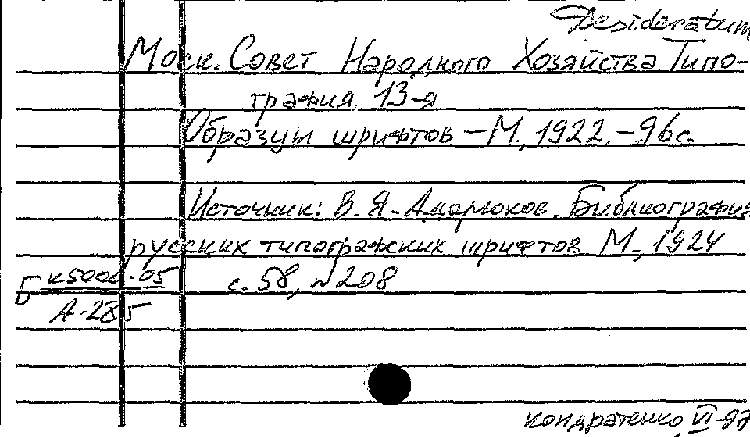 Desideratum
Моск. Совет Народного Хозяйства Типо-
графия 13-я
Образцы шрифтов – М., 1922. – 96 с.
Источник: В. Я. Адарюков. Библиография
русских типографских шрифтов М., 1924
с. 58, №208
Б А-285
Кондратенко VI-97